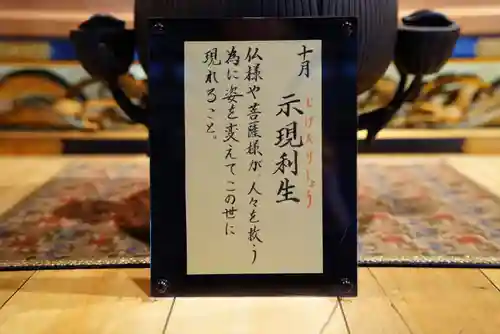 十月
示現利生
じげんりしょう
仏様や菩薩様が、人々を救う
為に姿を変えてこの世に
現れること。